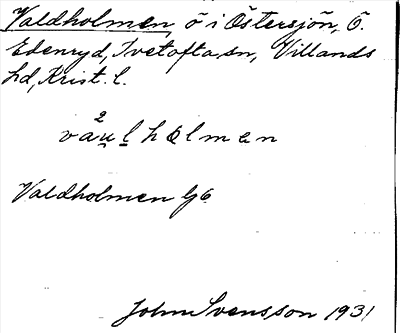 Valdholmen, ö i Östersjön, Ö.
Edenryd, Ivetofta sn, Villands
hd, Krist. l.
va²u̠l̠holmen
Valdholmen
John Svensson 1931